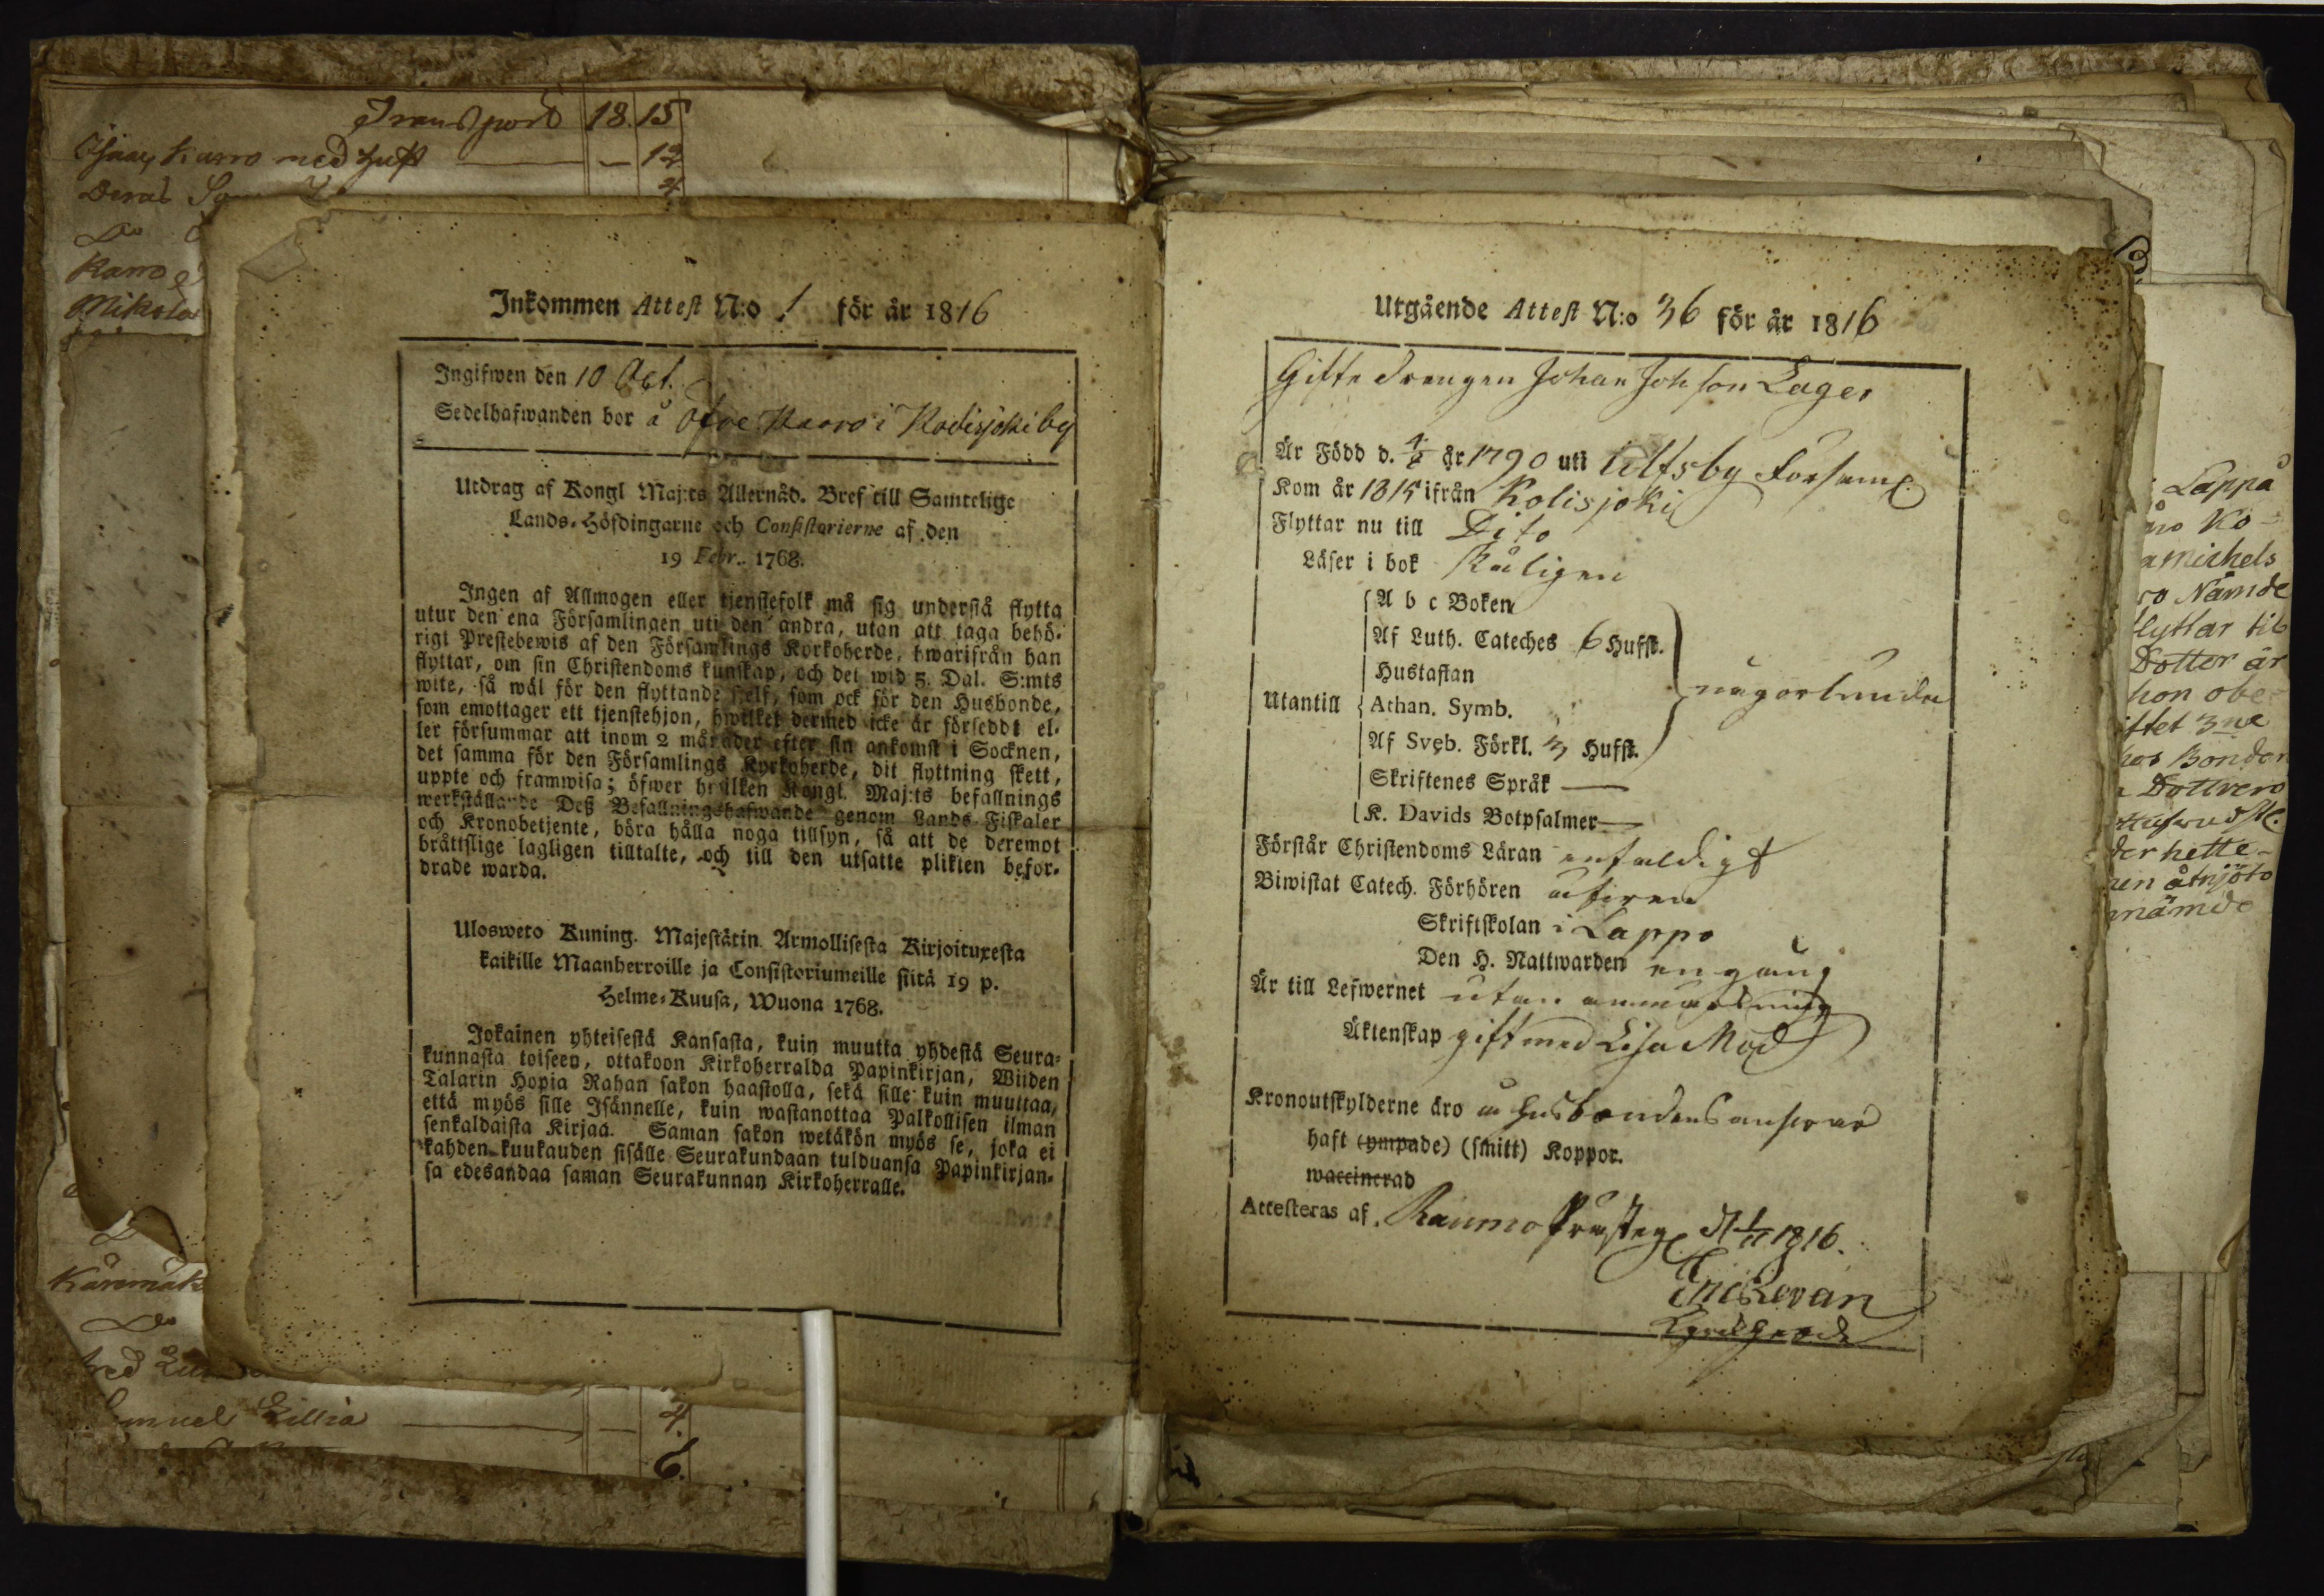 Transport 18. 15
Karro med Hust — — 12
Deras 4
Do
Karro
Mikola
Inkommen Attest N:o 1 för år 1816
Ingifwen den 10 Oct.
Sedelhafwanden bor å Öfre Karro i Kodisjoki by
Utdrag af Kongl Maj:ts Allernåd. Bref till Samtelige
Lands-Höfdingarne och Consistorierne af den
19 Febr. 1768.
Ingen af Allmogen eller tjenstefolk må sig understå flytta
utur den ena Församlingen uti den andra, utan att taga behö-
rigt Prestebewis af den Församlings Kyrkoherde, hwarifrån han
flyttar, om sin Christendoms kunskap, och det wid 5. Dal. S:mts
wite, så wäl för den flyttande sjelf, som ock för den Husbonde,
som emottager ett tjenstehjon, hwilket dermed icke är försedd; el-
ler försummar att inom 2 månader efter sin ankomst i Socknen,
det samma för den Församlings Kyrkoherde, dit flyttning skett,
uppte och framwisa; öfwer hwilken Kongl. Maj:ts befallnings
werkställande Deß Befallningshafwande genom Lands Fiskaler
och Kronobetjente, böra hålla noga tillsyn, så att de deremot
bråttslige lagligen tilltalte, och till den utsatte plikten befor-
drade warda.
Ulosweto Kuning. Majestätin Armollisesta Kirjoituxesta
kaikille Maanherroille ja Consistoriumeille siitä 19 p.
Helme-Kuusa, Wuona 1768.
Jokainen yhteisestä Kansasta, kuin muutta yhdestä Seura-
kunnasta toiseen, ottakoon Kirkoherralda Papinkirjan, Wiiden
Talarin Hopia Rahan sakon haastolla, sekä sille kuin muuttaa,
että myös sille Isännelle, kuin wastanottaa Palkollisen ilman
senkaldaista Kirjaa. Saman sakon wetäkön myös se, joka ei
kahden kuukauden sisälle Seurakundaan tulduansa Papinkirjan-
sa edesandaa saman Seurakunnan Kirkoherralle.
Do
Samuel Lillia — — 4.
6.
Utgående Attest N:o 36 för år 1816
Gifte Drengen Johan Johsson Lager
Är Född d. år 1790 uti Ulfsby Församl.
Kom år 1815 ifrån Kolisjoki
Flyttar nu till Dito
Läser i bok
A b c Boken
Af Luth. Cateches 6 Hufst.
Hustaflan
Utantill Athan. Symb. någorlunda
Af Sveb. Förkl. 3 Hufst.
Skriftenes Språk —
K. Davids Botpsalmer —
Förstår Christendoms Läran enfaldigt
Biwistat Catech. Förhören
Skriftskolan i Lappo
Den H. Nattwarden en gång
Är till Lefwernet utan anmärkning
Äktenskap gift med Lisa
Kronoutskylderne äro å husbondens answar
haft (ympade) (smitt) Koppor.
waccinerad
Attesteras af. Raumo Prästeg. d 1/11 1816.
Lappå
Ko-
michels
Nämde
flyttar til
Dotter är
hon obe-
3ne
hos Bonden
Dottrens
hette-
åtnjöto
nämde